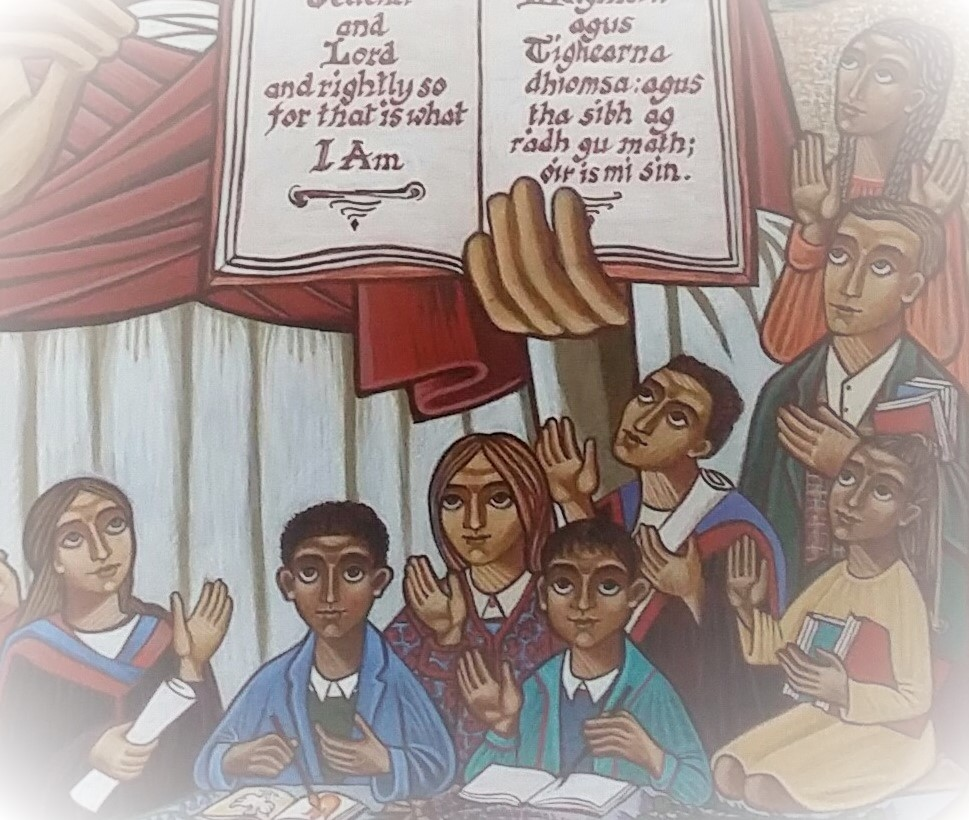 Teacher
and
Lord
and rightly so
for that is what
I Am
agus
Tighearna
dhiomsa: agus
tha sibh ag
ràdh gu math;
oir is mi sin.